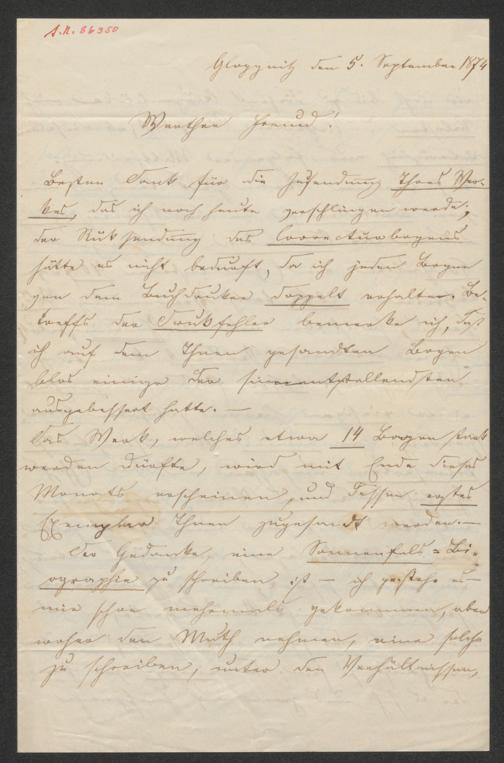 I.N. 86950
Gloggnitz den 5. September 1874
Werther Freund!
Besten Dank für die Zusendung Ihres Wer-
kes, das ich noch heute verschlingen werde;
der Rüksendung des Correcturbogens
hätte es nicht bedurft, da ich jeden Bogen
von dem Buchdruker doppelt erhalte. Be-
treffs der Drukfehler bemerke ich, daß
ich auf dem Ihnen gesandten Bogen
blos einige der sinnentstellendsten
ausgebessert hatte. —
Das Werk, welches etwa 14 Bogen stark
werden dürfte, wird mit Ende dieses
Monats erscheinen, und dessen erstes
Exemplar Ihnen zugesandt werden. —
Der Gedanke, eine Sonnenfels-Bi-
ographie zu schreiben, ist — ich gestehe es —
mir schon mehrmals gekommen, aber
woher den Muth nehmen, eine solche
zu schreiben, unter den Verhältnissen,